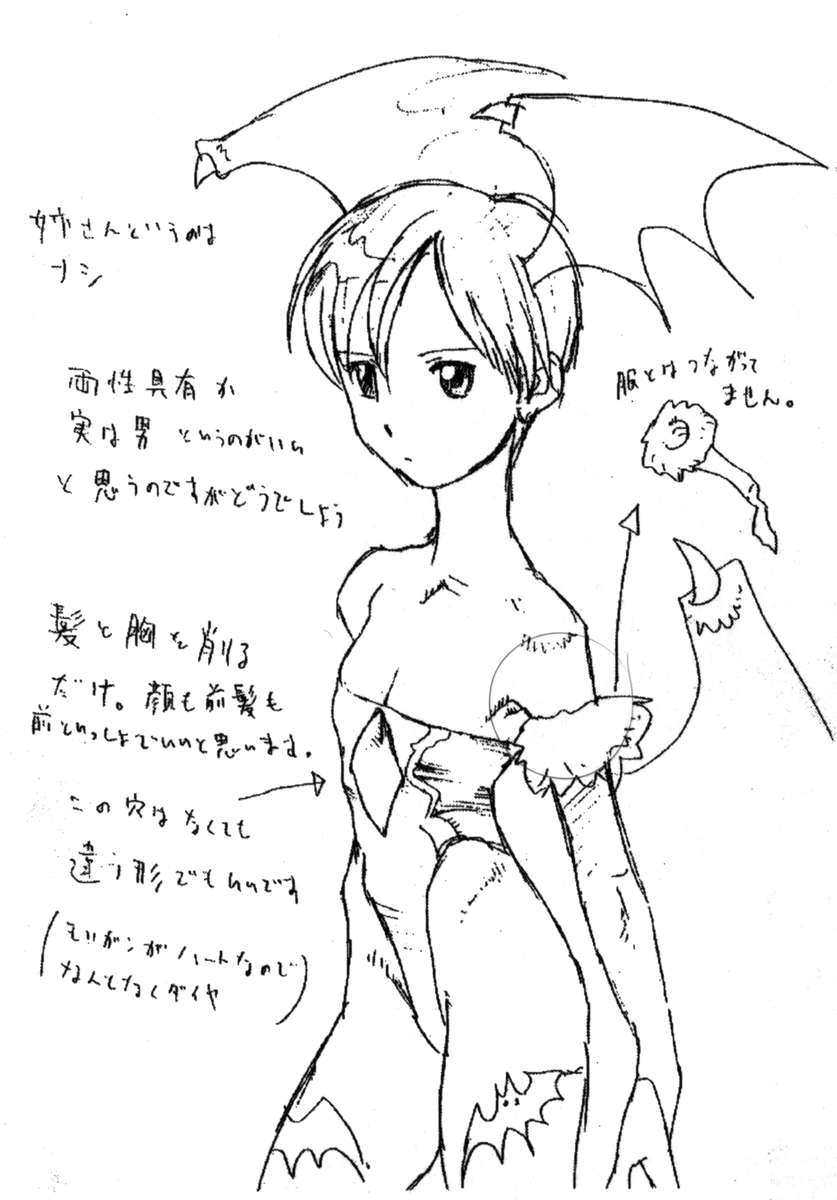 姉さんというのは
ナシ
両性具有か
実は男というのがいい
と思うのですがどうでしょう
服とはつながって
ません。
髪と胸を削る
だけ。顔も前髪も
前といっしょでいいと思います。
この穴はなくても
違う形でもいいです
(モリガンがハートなので
なんとなくダイヤ)